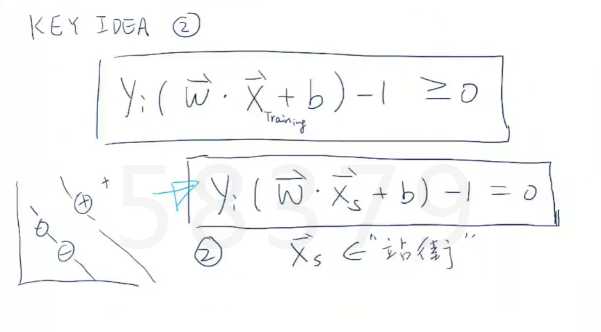 KEY IDEA ②
yᵢ( w⃗ · x⃗_Training + b ) - 1 ≥ 0
yᵢ( w⃗ · x⃗ₛ + b ) - 1 = 0
② x⃗ₛ ∈ "站街"
+
+
-
-
58379